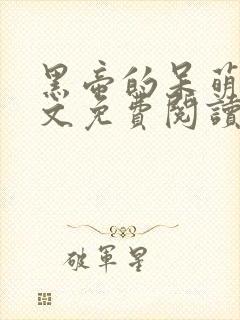 黑帝的呆萌
文免費閱讀
破軍星